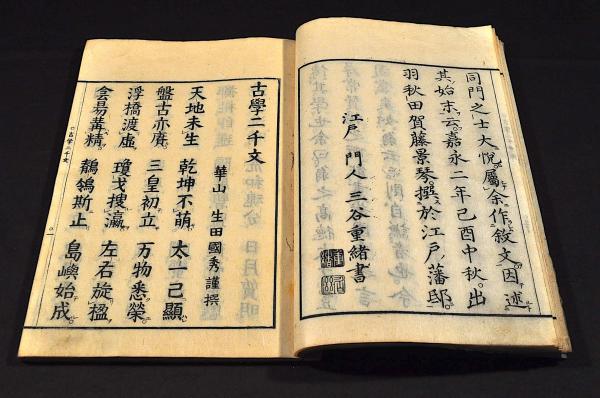 同門之士大悦屬余作敘文因述
其始末云。嘉永二年己酉中秋。出
羽秋田賀藤景琴撰於江戸藩邸。
江戸 門人三谷重緒書
古學二千文
華山 生田國秀謹撰
天地未生 乾坤不萌 太一已顯
盤古亦廣 三皇初立 万物悉榮
浮橋渡虚 瓊戈捜瀛 左右旋楹
侌昜冓精 鶺鴒斯止 島嶼始成
古學二千文